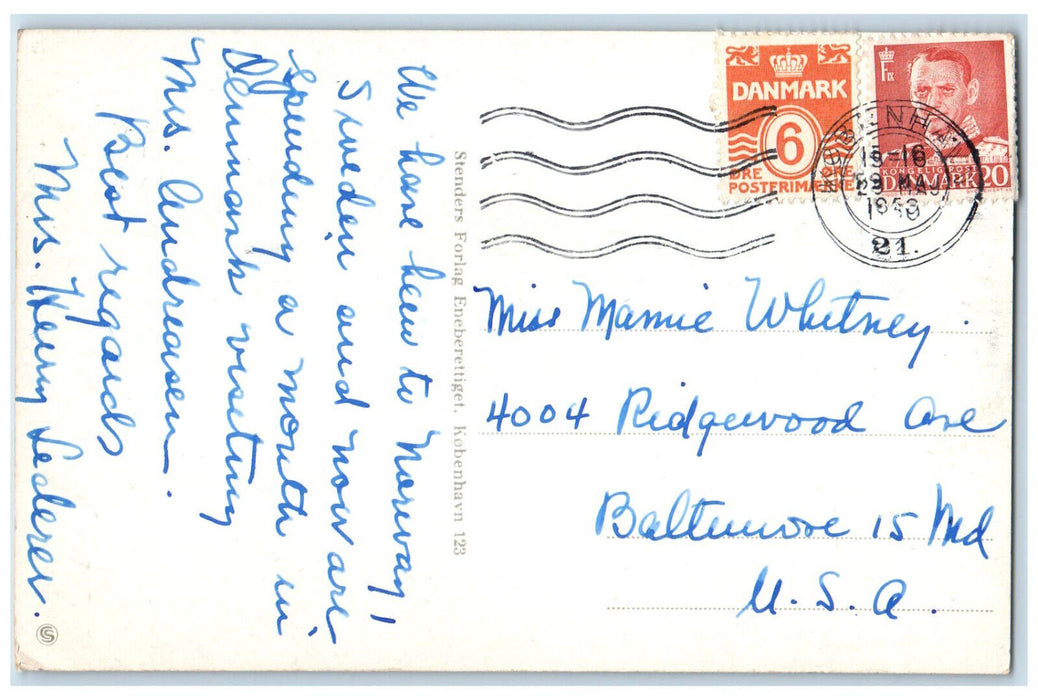 We have been to Norway!
Sweden and now are
spending a month in
Denmark visiting
Mrs. Andreasen.
Best regards
Mrs. Henry Lederer.
Stenders Forlag Eneberettiget. København 123
DANMARK
6
ØRE ØRE
POSTERIMÆRKE
KONGELIG POST
DANMARK 20
KØBENHAVN
15-16
29 MAJ
21.
Miss Mamie Whitney.
4004 Ridgewood Ave
Baltimore 15 Md
U. S. A.